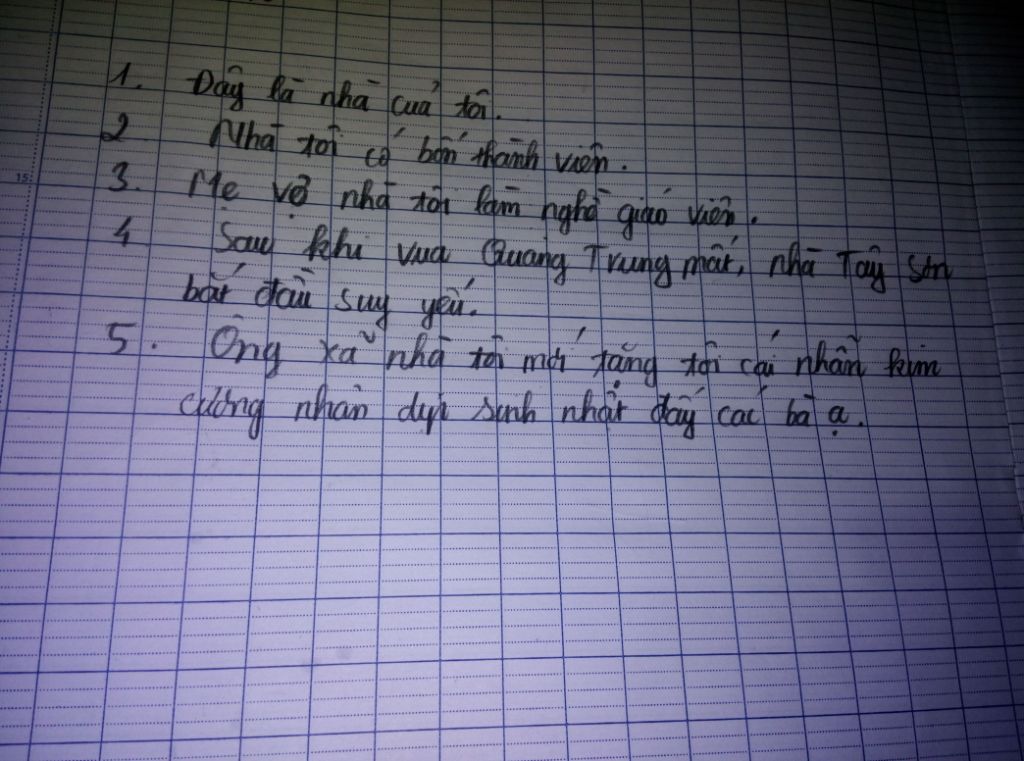 1. Đây là nhà của tôi.
2 Nhà tôi có bốn thành viên.
3. Mẹ vợ nhà tôi làm nghề giáo viên.
4 Sau khi vua Quang Trung mất, nhà Tây Sơn
bắt đầu suy yếu.
5. Ông xã nhà tôi mới tặng tôi cái nhẫn kim
cương nhân dịp sinh nhật đấy các bà ạ.